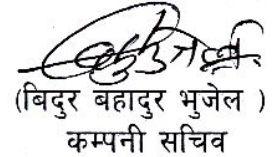 (बिदुर बहादुर भुजेल )
कम्पनी सचिव